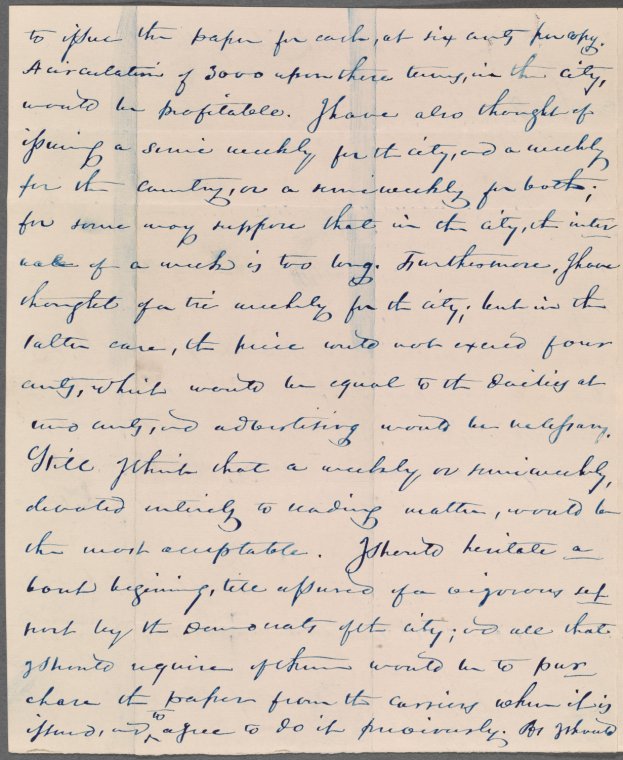 to issue the paper for cash, at six cents per copy.
A circulation of 3000 upon these terms, in the city,
would be profitable. I have also thought of
issuing a semi weekly for the city, and a weekly
for the country, or a semiweekly for both;
for some may suppose that in the city, the inter
val of a week is too long. Furthermore, I have
thought of a tri weekly for the city; but in the
latter case, the price could not exceed four
cents, which would be equal to the dailies at
two cents, and advertising would be necessary.
Still I think that a weekly or semiweekly,
devoted entirely to reading matter, would be
the most acceptable. I should hesitate a
bout begining, till assured of a vigorous sup
port by the Democrats of the city; and all that
I should require of them would be to pur
chase the paper from the carriers when it is
issued, and to agree to do it previously. As I should